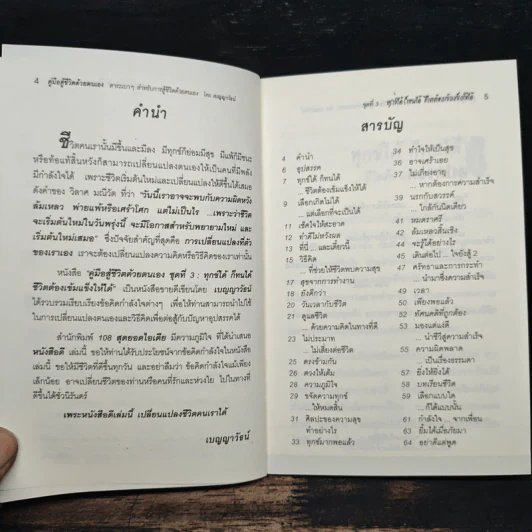 4 คู่มือสู้ชีวิตด้วยตนเอง สาระเบาๆ สำหรับการสู้ชีวิตด้วยตนเอง โดย เบญญาวัธน์
คำนำ
ชีวิตคนเรานั้นมีขึ้นและมีลง มีทุกข์ก็ย่อมมีสุข มีแพ้ก็มีชนะ
หรือท้อแท้สิ้นหวังก็สามารถเปลี่ยนแปลงตนเองให้เป็นคนที่มีพลัง
มีกำลังใจได้ เพราะชีวิตเริ่มต้นใหม่และเปลี่ยนแปลงให้ดีขึ้นได้เสมอ
ดังคำของ วิลาศ มณีวัต ที่ว่า "วันนี้เราอาจจะพบกับความผิดหวัง
ล้มเหลว พ่ายแพ้หรือเศร้าโศก แต่ไม่เป็นไร ...เพราะว่าชีวิต
จะเริ่มต้นใหม่ในวันพรุ่งนี้ จะมีโอกาสสำหรับพยายามใหม่ และ
เริ่มต้นใหม่เสมอ" ซึ่งปัจจัยสำคัญที่สุดคือ การเปลี่ยนแปลงที่ตัว
ของเราเอง เราจะต้องเปลี่ยนแปลงความคิดหรือวิธีคิดของเราเท่านั้น
หนังสือ "คู่มือสู้ชีวิตด้วยตนเอง ชุดที่ 3 : ทุกข์ได้ ก็ทนได้
ชีวิตต้องเข้มแข็งให้ได้" เป็นหนังสือขายดีเขียนโดย เบญญาวัธน์
ได้รวบรวมเรียบเรียงข้อคิดกำลังใจต่างๆ เพื่อให้ท่านสามารถนำไปใช้
ในการเปลี่ยนแปลงตนเองและวิธีคิดเพื่อต่อสู้กับปัญหาอุปสรรคได้
สำนักพิมพ์ 108 สุดยอดไอเดีย มีความภูมิใจ ที่ได้นำเสนอ
หนังสือดี เล่มนี้ ขอให้ท่านได้รับประโยชน์จากข้อคิดกำลังใจในหนังสือ
เล่มนี้ ขอให้มีชีวิตที่ดีขึ้นทุกวัน และอย่าลืมว่า ข้อคิดกำลังใจแม้เพียง
เล็กน้อย อาจเปลี่ยนชีวิตของท่านหรือคนที่รักและห่วงใย ไปในทางที่
ดีขึ้นได้ชั่วนิรันดร์
เพราะหนังสือดีเล่มนี้ เปลี่ยนแปลงชีวิตคนเราได้
เบญญาวัธน์
ชุดที่ 3 : ทุกข์ได้ ก็ทนได้ ชีวิตต้องเข้มแข็งให้ได้ 5
สารบัญ
4 คำนำ
6 อุปสรรค
7 ทุกข์ได้ ก็ทนได้
...ชีวิตต้องเข้มแข็งให้ได้
9 เลือกเกิดไม่ได้
...แต่เลือกที่จะเป็นได้
11 เช็ดใจให้สะอาด
12 ทำดีไม่หวังผล
13 ที่นี่ ...และเดี๋ยวนี้
15 วิธีคิด
...ที่ช่วยให้ชีวิตพบความสุข
17 สุขจากการทำงาน
18 ยังดีกว่า
20 วันเวลากับชีวิต
21 ดูแลชีวิต
...ด้วยความคิดในทางที่ดี
23 ไม่ประมาท
...ไม่เสี่ยงต่อชีวิต
25 ตรงข้ามกัน
26 ตรงให้เต็ม
28 ความภูมิใจ
29 ขจัดความทุกข์
...ให้หมดสิ้น
31 ศิลปะของความสุข
ทำอย่างไร
33 ทุกข์มากพอแล้ว
34 ทำใจให้เป็นสุข
36 อาจเศร้าเลย
37 ไม่เกี่ยงอายุ
...หากต้องการความสำเร็จ
39 นรกกับสวรรค์
...ใกล้กันนิดเดียว
41 หมดราศรี
42 ล้มเหลวสิ้นเชิง
44 จะรู้ได้อย่างไร
45 เดินต่อไป ...ใจยังสู้ 2
47 ศรัทธาและการกระทำ
...นำมาซึ่งความสำเร็จ
49 เวลา
50 เพียงพอแล้ว
52 ทัศนคติที่ถูกต้อง
53 มองแต่แง่ดี
...นำชีวิตสู่ความสำเร็จ
55 ความผิดพลาด
...เป็นเรื่องธรรมดา
57 ยิ่งให้ยิ่งได้
58 บทเรียนชีวิต
59 เลือกแบบใด
...ก็ได้แบบนั้น
61 กำลังใจ ...จากเพื่อน
63 ยิ้มได้เมื่อภัยมา
64 อย่าดีแต่พูด